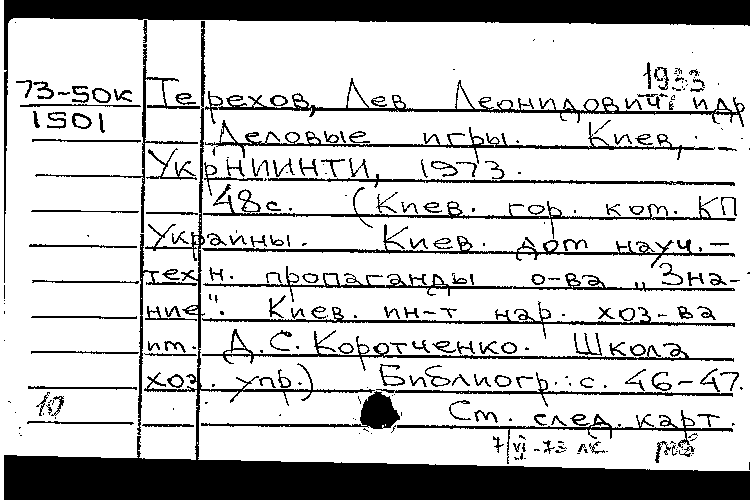 1933
73-50К Терехов, Лев Леонидович и др
1501
Деловые игры. Киев,
УкрНИИНТИ, 1973.
48с. (Киев. гор. ком. КП
Украины. Киев. дом науч.-
техн. пропаганды о-ва „Зна-
ние". Киев. ин-т нар. хоз-ва
им. Д.С. Коротченко. Школа
хоз. упр.) Библиогр.: с. 46-47.
10 Ст. след. карт.
7/VI-73